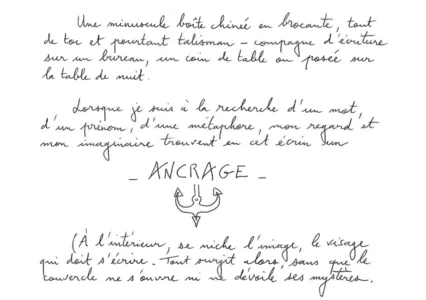 Une minuscule boîte chinée en brocante, tout
de toc et pourtant talisman – compagne d'écriture
sur un bureau, un coin de table ou posée sur
la table de nuit.
Lorsque je suis à la recherche d'un mot,
d'un prénom, d'une métaphore, mon regard et
mon imaginaire trouvent en cet écrin un
– ANCRAGE –
(À l'intérieur, se niche l'image, le visage
qui doit s'écrire. Tout surgit alors, sans que le
couvercle ne s'ouvre ni ne dévoile ses mystères.